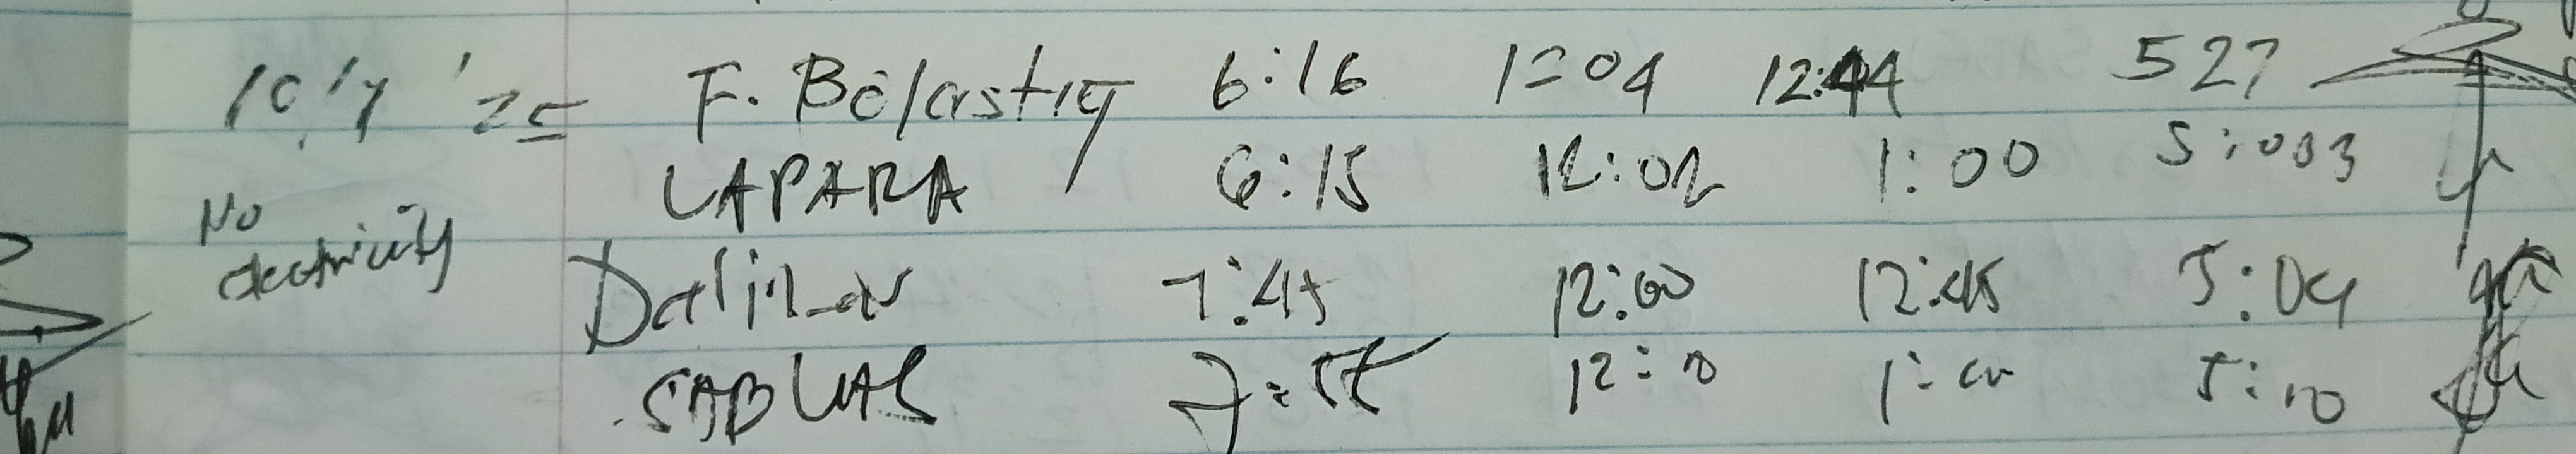 10/7 '25 F. Bolastig 6:16 1204 12:44 527
LAPARA 6:15 12:02 1:00 5:003
No electricity
Dalinav 7:45 12:00 12:45 5:04
SABUAS 7:55 12:10 1:00 5:10